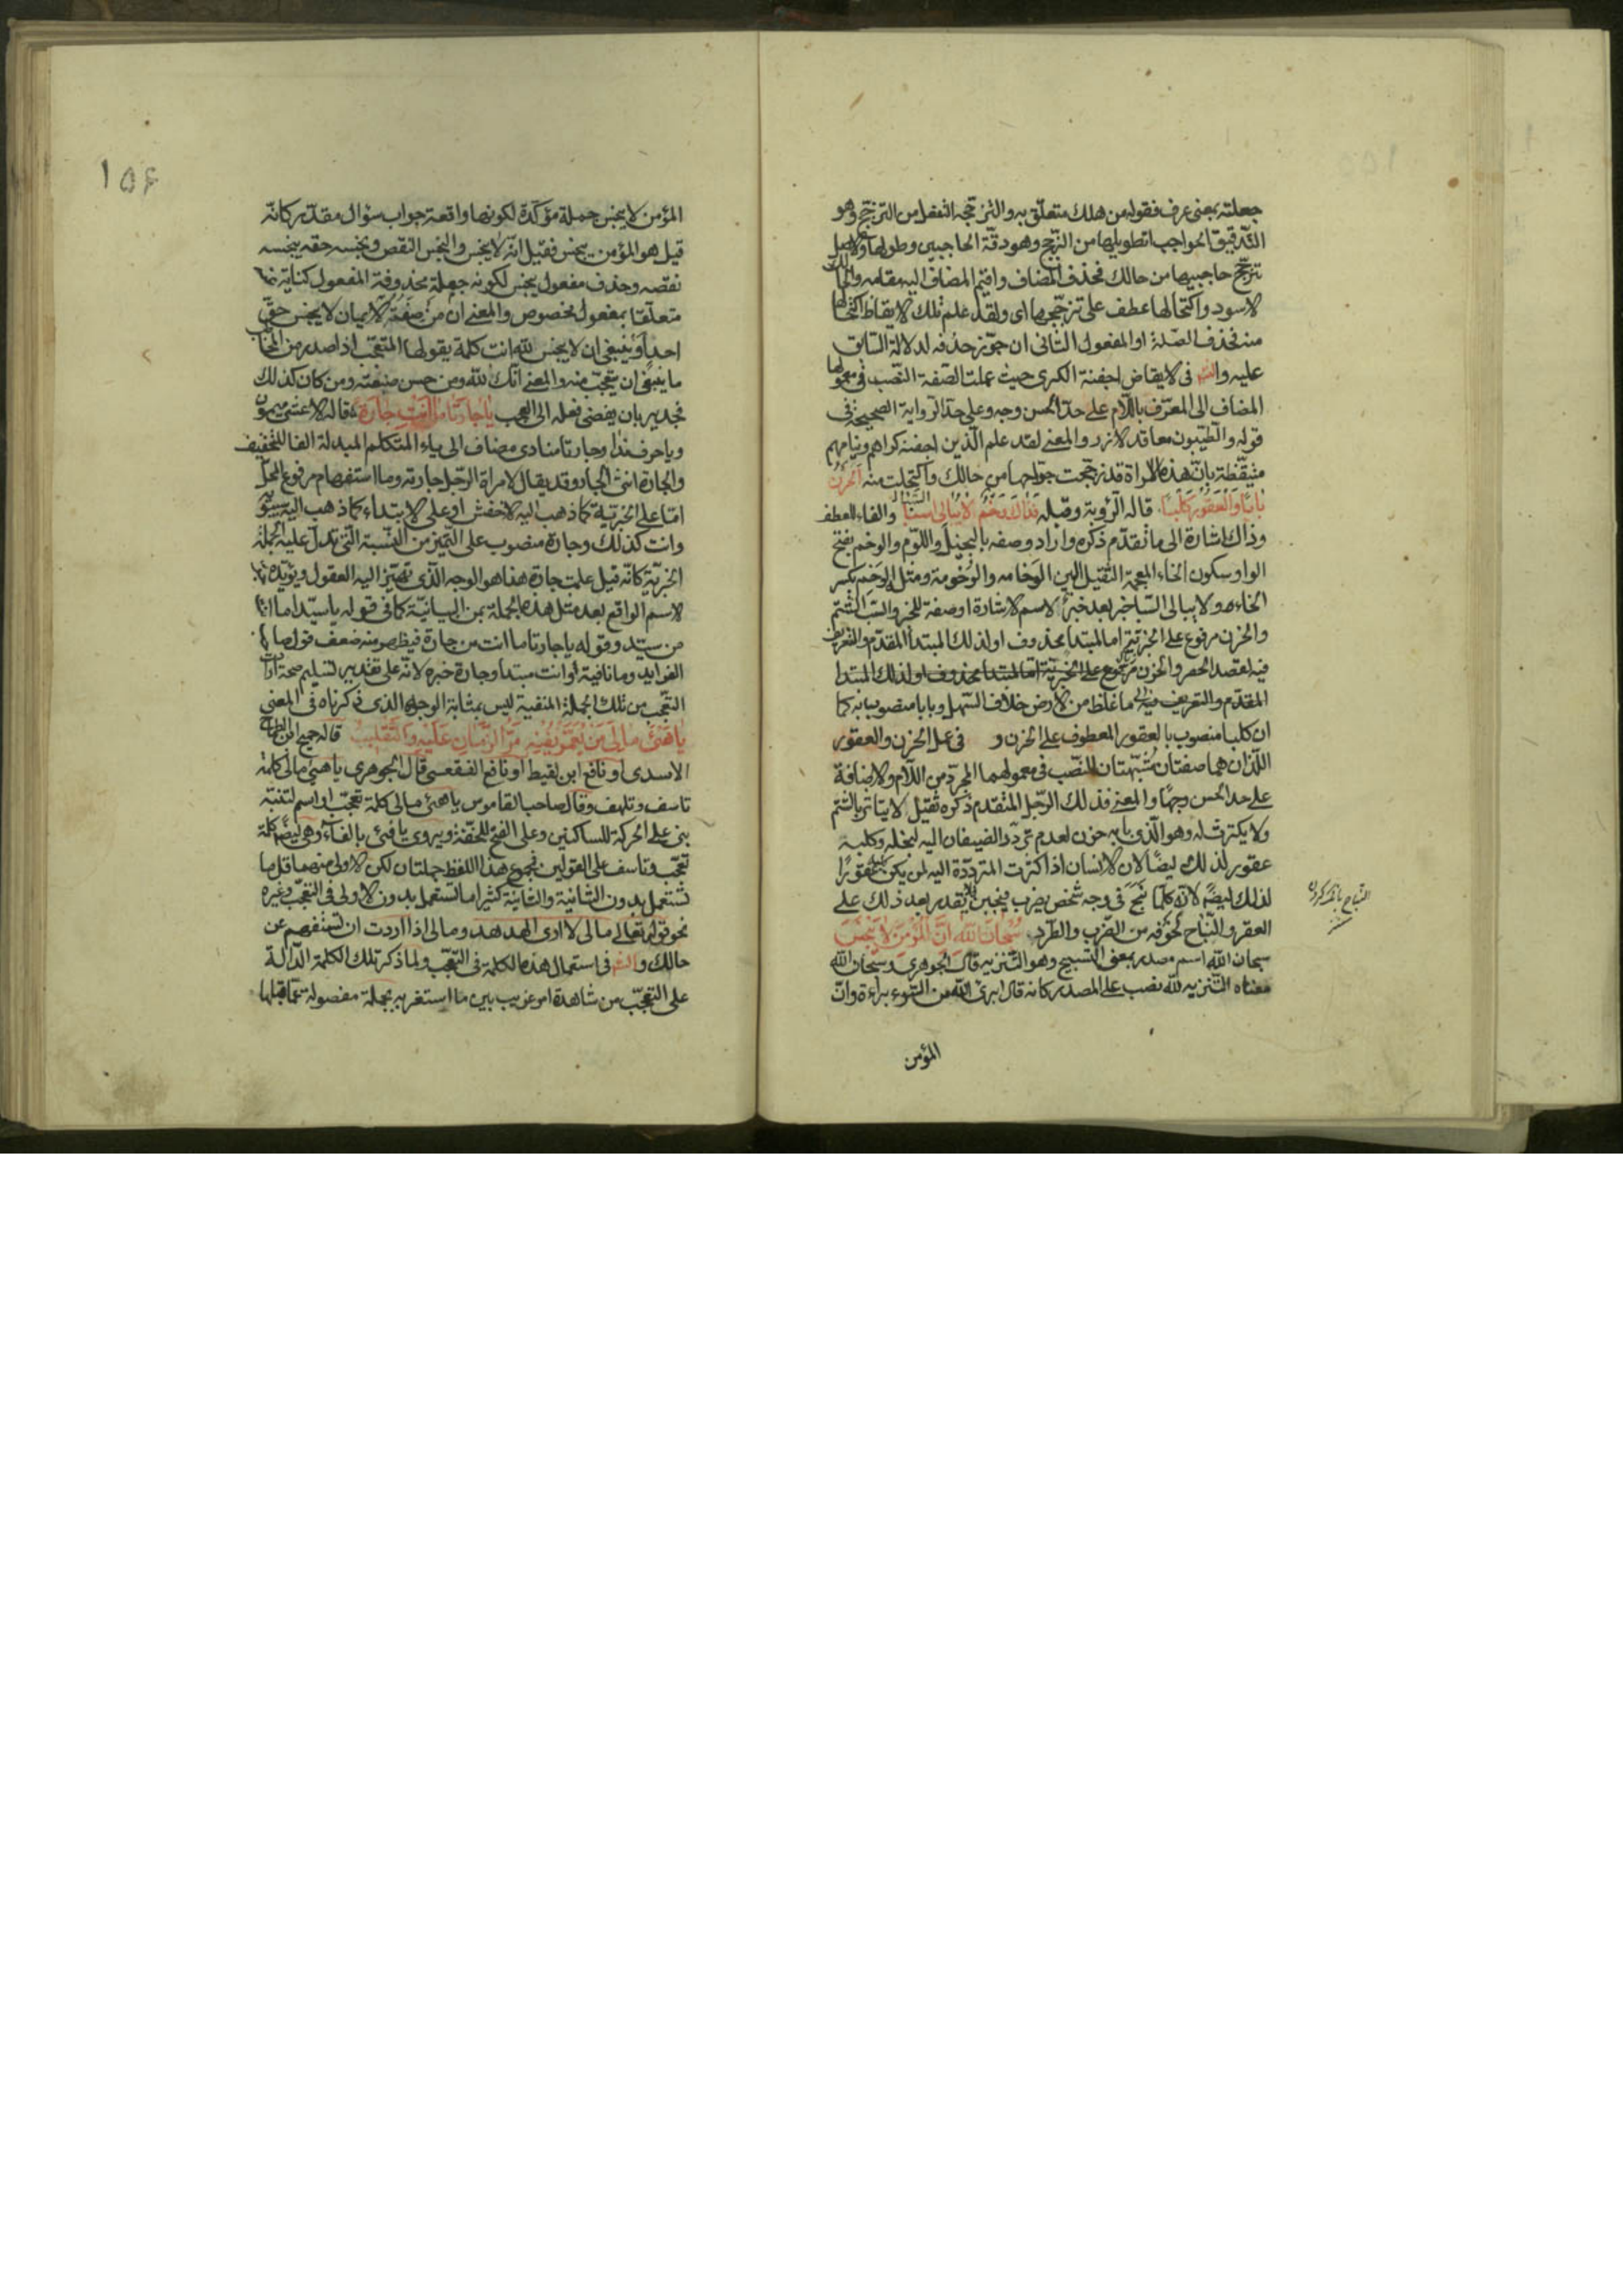 جعلته بمعنى عرف فقوله من هلك متعلّق به والتزجّج التفعل من التزجّج وهو
التدقيق الحواجب تطويلها من الزجج وهو دقّة الحاجبين وطولهما والاصل
تزجّج حاجبيها من حالك فحذف المضاف واقيم المضاف اليه مقامه والحالك
الاسود واكتحالها عطف على تزجّجها اى ولقد علم تلك الايقاظ اكتحالها
منه فحذف الصلة او المفعول الثانى ان جوّز حذفه لدلالة السابق
عليه والشاهد فى الايقاظ اجفنة الكرى حيث عملت الصّفة النّصب فى معمولها
المضاف الى المعرّف باللّام على حدّ الحسن وجه وعلى حدّ الرواية الصحيحة فى
قوله والطّيبون معاقد الازر والمعنى لقد علم الّذين اجفنة كراهم ونيامهم
متيقّظة بانّ هذه الامراة قد زجّجت حواجبها من حالك واكتحلت منه الحزن
بابا والعقور كلبا قاله الرؤبة وصله فذاك وخم لا يبالى السّبّا والفاء للعطف
وذاك اشارة الى ما تقدّم ذكره واراد وصفه بالبخل واللّوم والوخم بفتح
الواو وسكون الخاء المعجمة الثقيل البين الوخامه والوخومة ومثل الوخم بكسر
الخاء هو ولا يبالى السّبا خبر بعد خبر لاسم الاشارة او صفة للخبر والسّب الشّتم
والحزن مرفوع على الخبريّة اما لمبتدا محذوف او لذلك المبتدا المقدّم والتعريف
فيه لقصد الحصر والحزن مرفوع على الخبريّة امّا لمبتدا محذوف او لذلك المبتدا
المقدّم والتعريف فيه ما غلظ من الارض خلاف السّهل وبابا منصوب به كما
ان كلبا منصوب بالعقور المعطوف على الحزن و فى عمل الحزن والعقور
اللّذان هما صفتان مشبّهتان النّصب فى معمولهما المجرّد من اللّام والاضافة
على حد الحسن وجها والمعنى فذلك الرّجل المتقدم ذكره ثقيل لا يتاثر بالشّتم
ولا يكترث له وهو الّذى بابه حزن لعدم تردّد الضيفان اليه لبخله وكلبه
عقور لذلك ايضًا لان الانسان اذا كثرت المتردّدة اليه لم يكن كلبه عقورًا
لذلك ايضًا لانه كلّما نبح فى وجه شخص يضرب فيجبن فلا يقدر بعد ذلك على
العقر والنّباح لخوفه من الضّرب والطّرد سبحان الله انّ المؤمن لا ينجس
سبحان الله اسم مصدر بمعنى التسبيح وهو التّنزيه قال الجوهرى وسبحان الله
معناه التّنزيه لله نصب على المصدر كانه قال ابرئ الله من السّوء براءة وانّ
المؤمن
المؤمن لا ينجس جملة مؤكّدة لكونها واقعة جواب سؤال مقدّر كانّه
قيل هو المؤمن ينجس فقيل انّه لا ينجس والبخس النقص وبخسه حقّه يبخسه
نقصه وحذف مفعول يبخس لكونه جملة محذوفة المفعول كناية
متعلّقا بمفعول مخصوص والمعنى ان من صفة الايمان لا يبخس حقّ
احد وينبغى ان لا يبخس لله انت كلمة يقولها المتعجّب اذا صدر من المخاطب
ما ينبغى ان يتعجّب منه والمعنى انّك لله ومن حسن صنيعته ومن كان كذلك
فجدير بان يفضى فعله الى العجب يا جارتا ما انت جاره قاله الاعشى ميمون
ويا حرف ندا وجارتا منادى مضاف الى ياء المتكلم المبدلة الفا للتخفيف
والجارة انثى الجار وقد يقال لامراة الرّجل جارته وما استفهام مرفوع المحلّ
امّا على الخبريّة كما ذهب اليه الاخفش او على الابتداء كما ذهب اليه سيبويه
وانت كذلك وجارة منصوب على التّميز من النّسبة الّتى تدلّ عليه الجملة
الخبريّة كانّه قيل علمت جارة هذا هو الوجه الّذى تهتزّ اليه العقول ويؤيّده
الاسم الواقع بعد مثل هذه الجملة بمن البيانيّة كما فى قوله يا سيّدا ما انت
من سيّد وقوله يا جارتا ما انت من جارة فيظهر منه ضعف قول صاحب
الفرايد وما نافية او انت مبتدا وجارة خبره لانّه على تقدير تسليم صحّة ارادة
التعّجب من تلك الجملة المنفية ليس بمثابة الوجه الذى ذكرناه فى المعنى
يا هنئ مالى من يعمّر يفنه مرّ الزّمان عليه والتّقليب قاله جميح ابن الطماح
الاسدى او نافع ابن لقيط او نافع الفقعسى قال الجوهرى يا هيئ مالى كلمة
تاسف وتلهف وقال صاحب القاموس يا هئ مالى كلمة تعجّب او اسم لتنبّه
بنى على الحركة للساكنين وعلى الفتح للخفّة ويروى يا فيئ بالفاء وهى ايضًا كلمة
تعجّب وتاسف على القولين فمجموع هذا اللفظ جملتان لكن الاولى منهما قلّما
تستعمل بدون الثانية والثانية كثيرا ما تستعمل بدون الاولى فى التعجّب وغيره
نحو قوله تعالى مالى لا ارى الهدهد ومالى اذا اردت ان تستفهم عن
حالك والشاهد فى استعمال هذه الكلمة فى التعجّب ولما ذكر تلك الكلمة الدّالة
على التعجّب من شاهدة امر غريب بين ما استغربه بجملة مفصولة عمّا قبلها